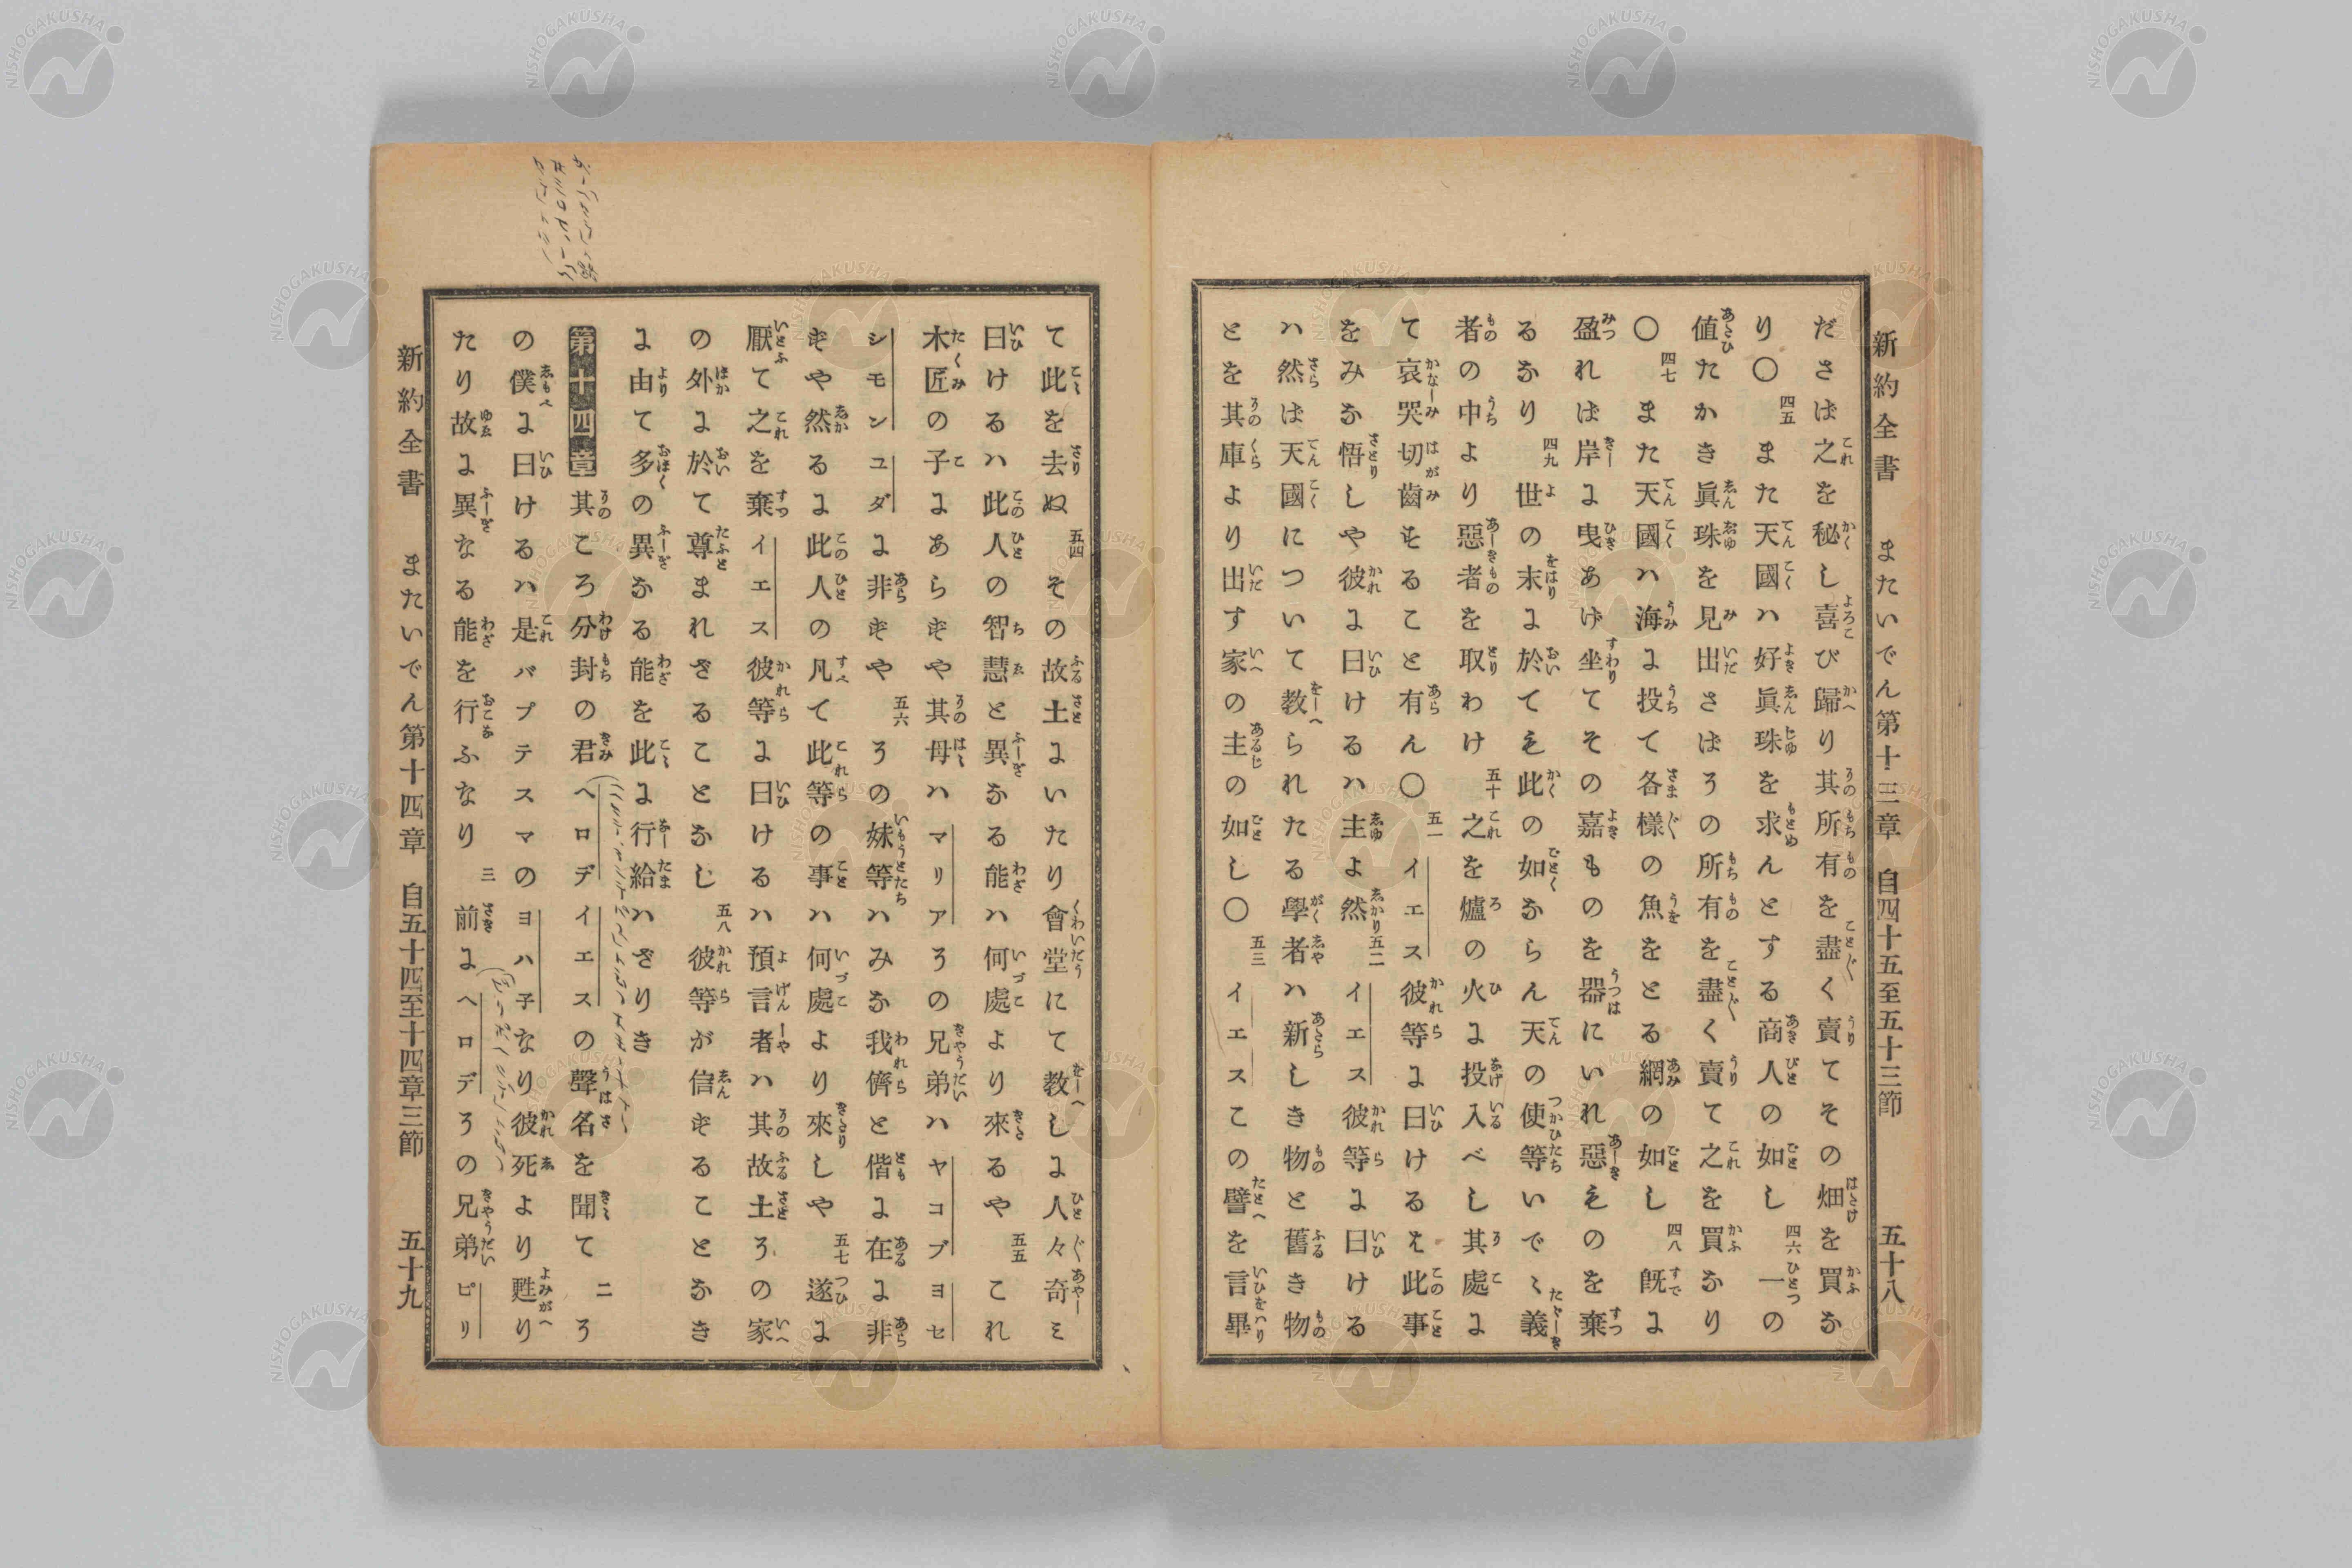 新約全書 またいでん第十三章 自四十五至五十三節 五十八
ださば之を秘し喜び歸り其所有を盡く賣てその畑を買か
り〇四五また天國ハ好眞珠を求んとする商人の如し四六一の
値たかき眞珠を見出さばその所有を盡く賣て之を買なり
〇四七また天國ハ海に投て各様の魚をとる網の如し四八既に
盈れば岸に曳あげ坐てその嘉ものを器にいれ惡ものを棄
るなり四九世の末に於ても此の如ならん天の使等いでゝ義
者の中より惡者を取わけ五十之を爐の火に投入べし其處に
て哀哭切齒することと有ん〇五一イエス彼等に曰けるは此事
をみな悟しや彼に曰けるハ主よ然五二イエス彼等に曰ける
ハ然ば天國について教られたる學者ハ新しき物と舊き物
とを其庫より出す家の主の如し〇五三イエスこの譬を言畢
て此を去ぬ五四その故土にいたり會堂にて教しに人々奇ミ
曰けるハ此人の智慧と異なる能ハ何處より來るや五五これ
木匠の子にあらずや其母ハマリアその兄弟ハヤコブヨセ
シモンユダに非ずや五六その妹等ハみな我儕と偕に在に非
ずや然るに此人の凡て此等の事ハ何處より來しや五七遂に
厭て之を棄イエス彼等に曰けるハ預言者ハ其故土その家
の外に於て尊まれざることなし五八彼等が信ずることなき
に由て多の異なる能を此に行給ハざりき
第十四章 其ころ分封の君ヘロデイエスの聲名を聞て二そ
の僕に曰けるハ是バプテスマのヨハ子なり彼死より甦り
たり故に異なる能を行ふなり三前にヘロデその兄弟ピリ
新約全書 またいでん第十四章 自五十四至十四章三節 五十九